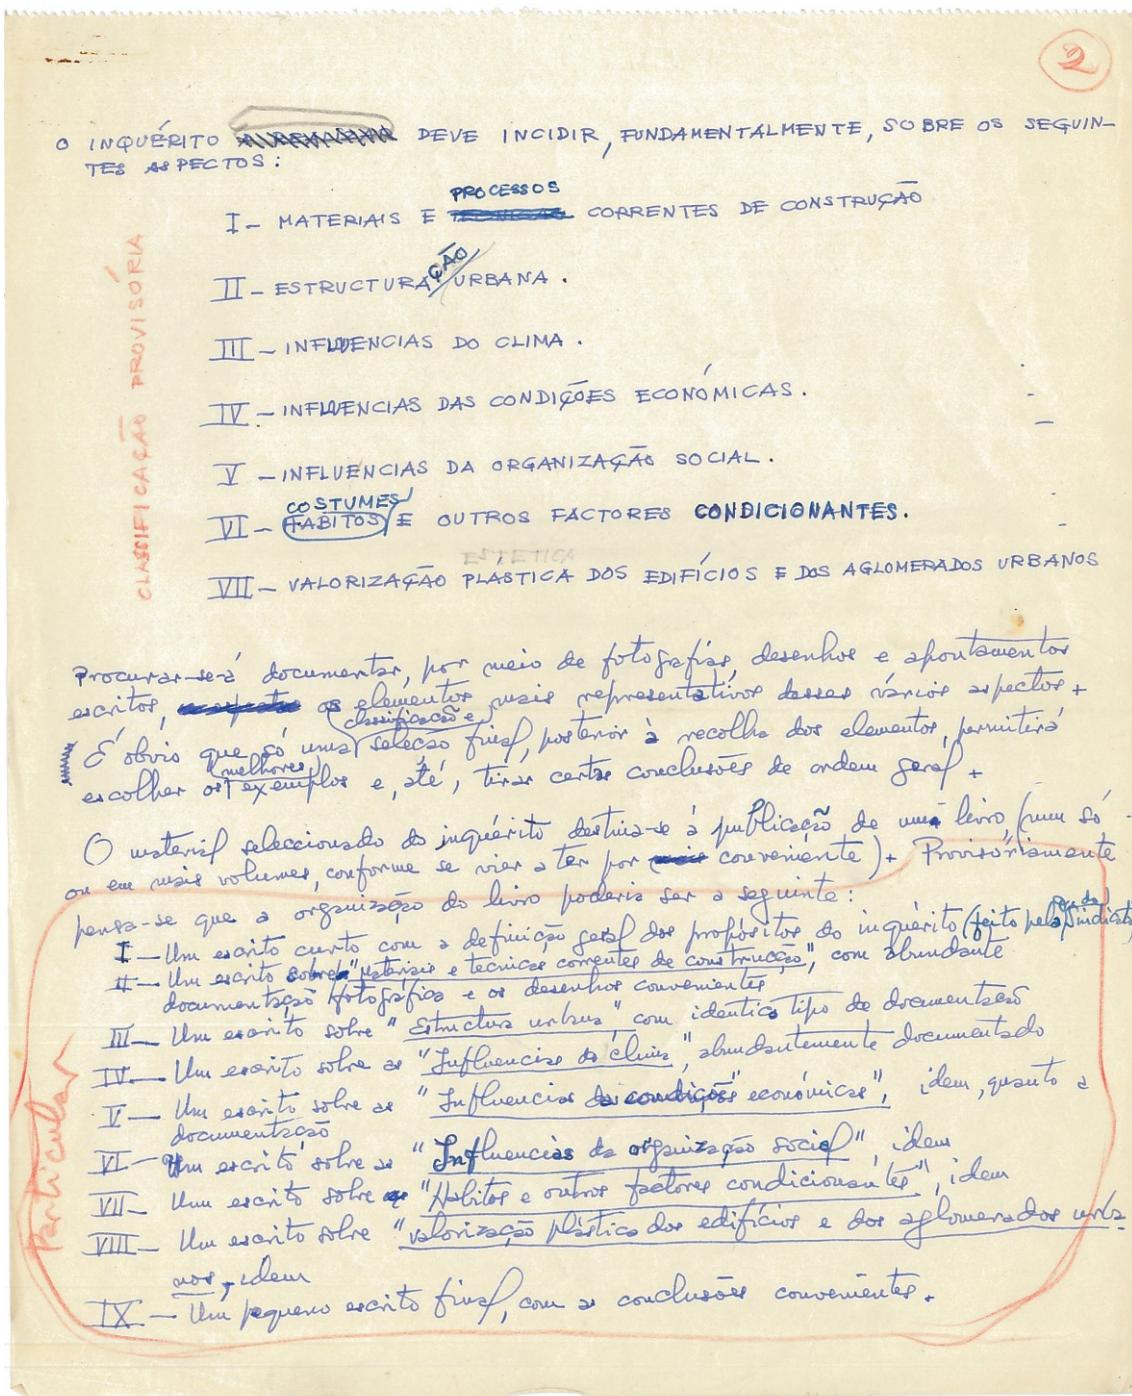 2
O INQUÉRITO DEVE INCIDIR, FUNDAMENTALMENTE, SOBRE OS SEGUIN-
TES ASPECTOS:
PROCESSOS
I - MATERIAIS E CORRENTES DE CONSTRUÇÃO
II - ESTRUCTURAÇÃO URBANA.
III - INFLUENCIAS DO CLIMA.
IV - INFLUENCIAS DAS CONDIÇÕES ECONÓMICAS.
V - INFLUENCIAS DA ORGANIZAÇÃO SOCIAL.
COSTUMES
VI - HABITOS E OUTROS FACTORES CONDICIONANTES.
ESTÉTICA
VII - VALORIZAÇÃO PLÁSTICA DOS EDIFÍCIOS E DOS AGLOMERADOS URBANOS
CLASSIFICAÇÃO PROVISÓRIA
Procurar-se-á documentar, por meio de fotografias, desenhos e apontamentos
escritos, os elementos mais representativos desses vários aspectos.
classificação e
É óbvio que só uma selecção final, posterior à recolha dos elementos, permitirá
melhores
escolher os exemplos e, até, tirar certas conclusões de ordem geral.
O material seleccionado do inquérito destina-se à publicação de um livro (num só
ou em mais volumes, conforme se vier a ter por conveniente). Provisóriamente
pensa-se que a organização do livro poderia ser a seguinte:
I - Um escrito curto com a definição geral dos propósitos do inquérito (feito pelo Sindicato)
II - Um escrito sobre "Materiais e tecnicas correntes de construcção", com abundante
documentação fotográfica e os desenhos convenientes
III - Um escrito sobre "Estructura urbana", com identico tipo de documentação
IV - Um escrito sobre as "Influencias do clima", abundantemente documentado
V - Um escrito sobre as "Influencias das condições económicas", idem, quanto a
documentação
VI - Um escrito sobre as "Influencias da organização social", idem
VII - Um escrito sobre "Habitos e outros factores condicionantes", idem
VIII - Um escrito sobre "valorização plástica dos edifícios e dos aglomerados urba-
nos, idem
IX - Um pequeno escrito final, com as conclusões convenientes.
Particular